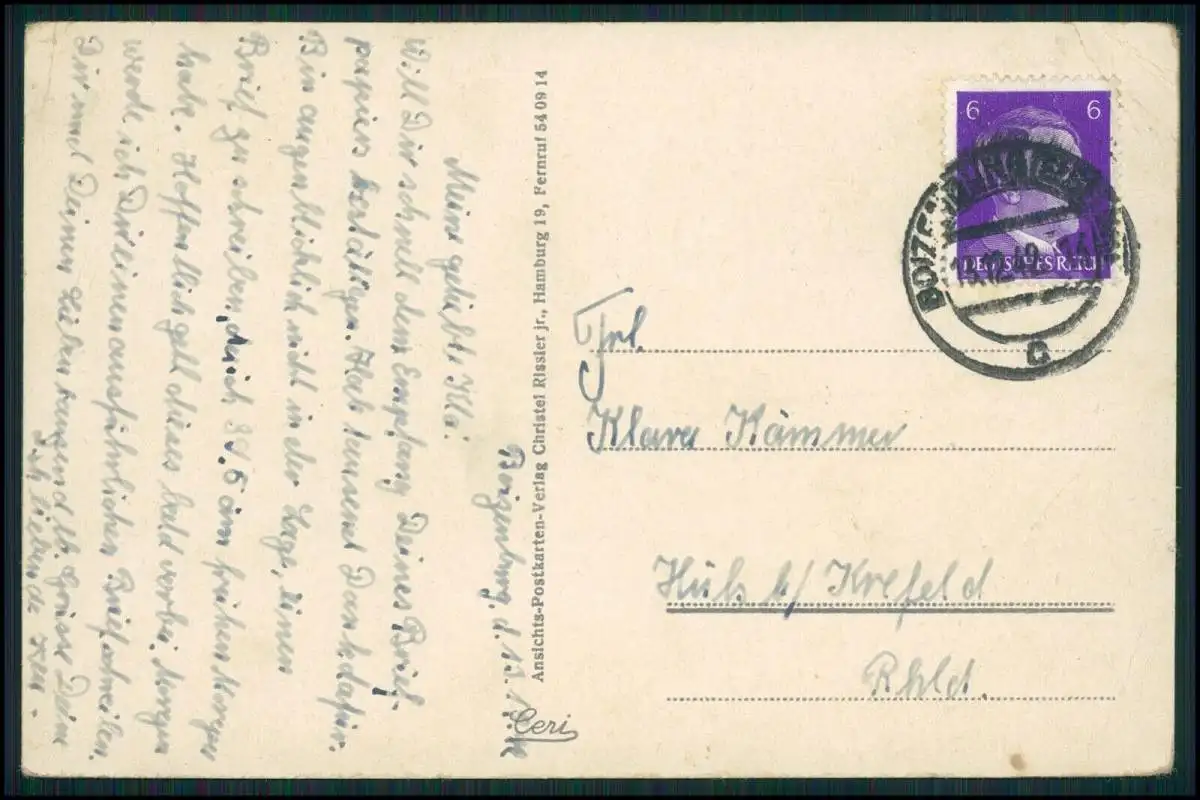 Boizenburg, d. 13.
Mein geliebt. Kla!
Will Dir schnell den Empfang Deines Brief-
papiers bestätigen. Hab tausend Dank dafür.
Bin augenblicklich nicht in der Lage, einen
Brief zu schreiben, da ich 39,5 am frühen Morgen
habe. Hoffentlich geht dieses bald vorbei. Morgen
werde ich Dir einen ausführlichen Brief schreiben.
Dir und Deinen Lieben tausend lb. Grüsse Dein
Dich liebender
Ansichts-Postkarten-Verlag Christel Rissler jr., Hamburg 19, Fernruf 54 09 14
Ceri
6 6
DEUTSCHES REICH
BOIZEN
c
Frl.
Klara Kämmer
Hüls b/ Krefeld
Rhld.